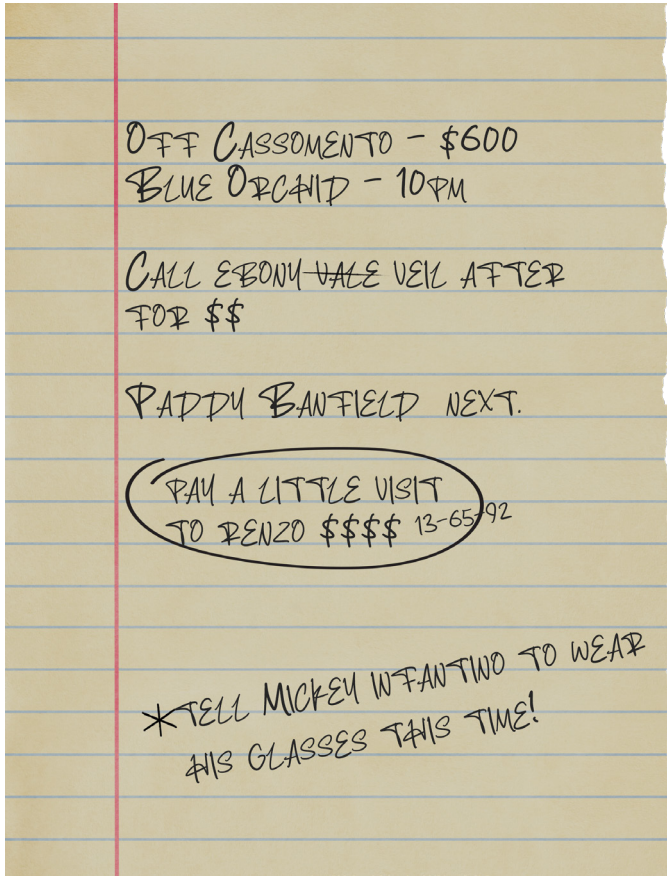 Off Cassomento - $600
Blue Orchid - 10pm
Call Ebony Vale Veil after
for $$
Paddy Banfield next.
Pay a little visit
to Renzo $$$$ 13-65-92
*Tell Mickey Infantino to wear
his glasses this time!